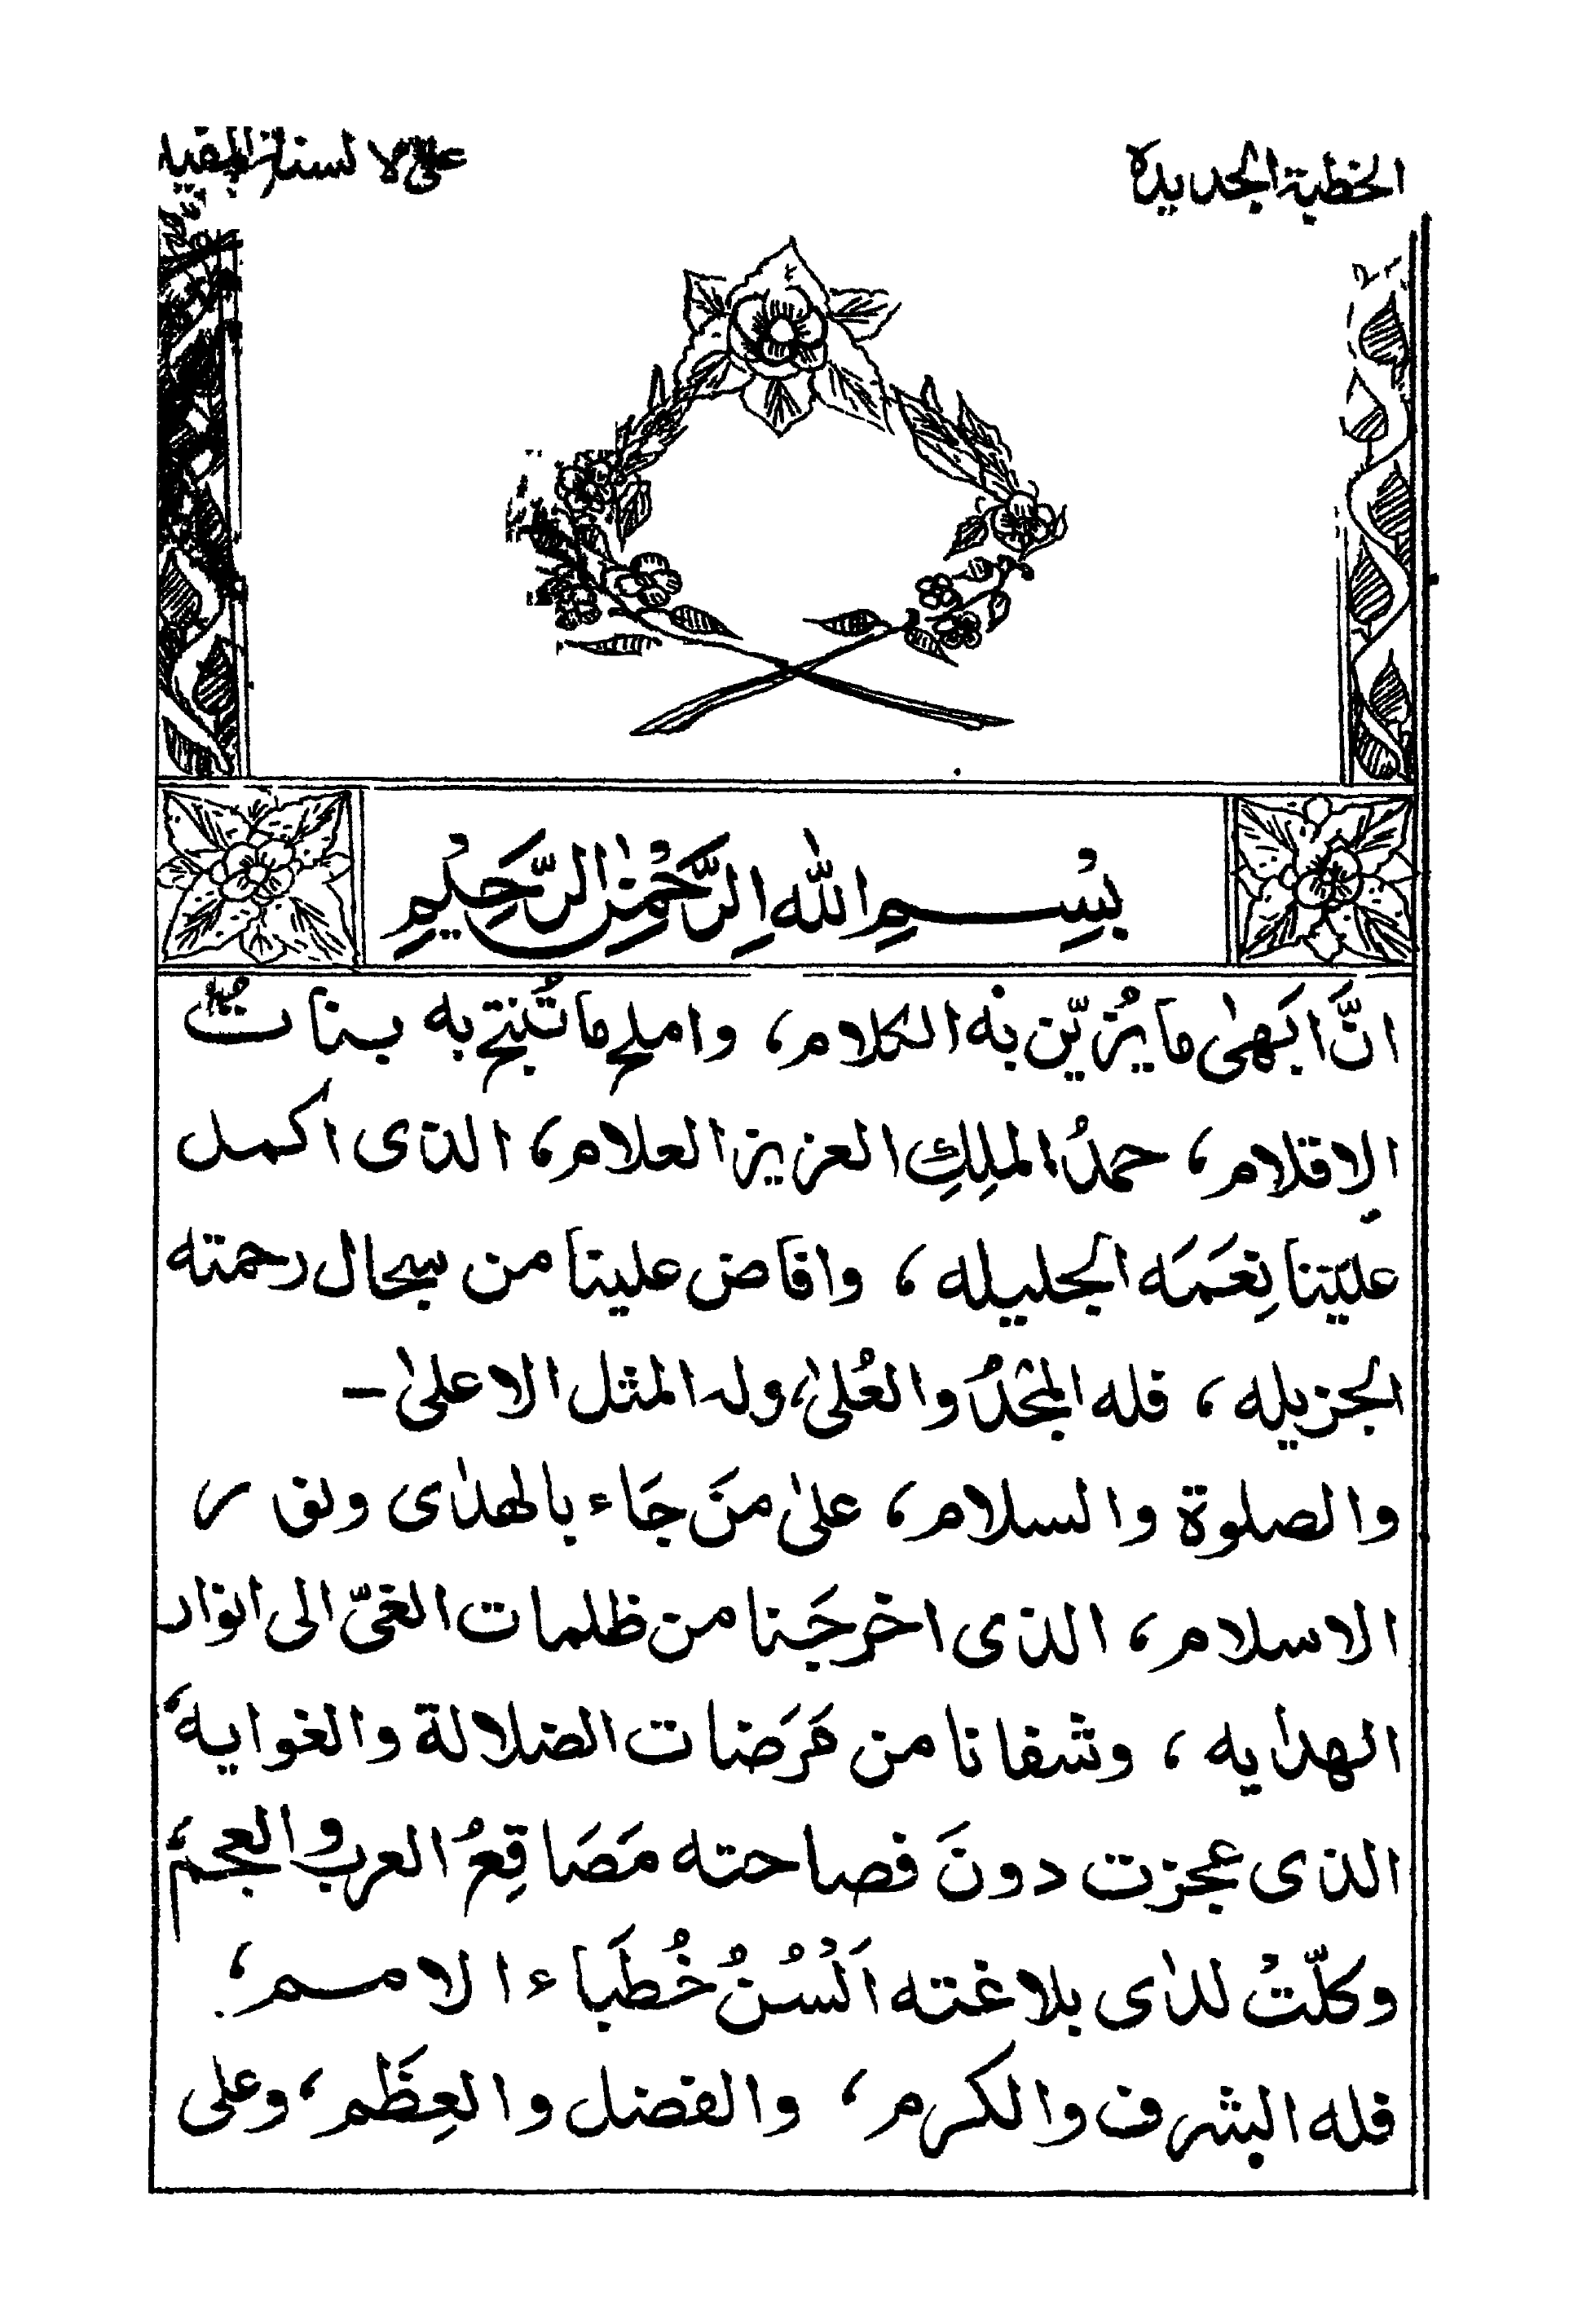 الخطبة الجديدة
على الالسنة
بِسْمِ اللهِ الرَّحْمٰنِ الرَّحِيْمِ
انَّ ابَهىٰ ما يُزيّن به الكلام، واملح ما تُنتج به بنات
الاقلام، حمدُ الملِكِ العزيز العلام، الذى اكمل
عليَنا نِعَمَه الجليله، وافاض علينا من سجال رحمته
الجزيله، فله المجْدُ والعُلىٰ، وله المثل الاعلىٰ -
والصلوة والسلام، علىٰ منَ جَاء بالهدٰى ونور
الاسلام، الذى اخرجَنا من ظلمات الغىّ الى انوار
الهدايه، وشفانا من مَرَضات الضلالة والغوايه،
الذى عجزت دونَ فصاحته مَصَاقِعُ العرب والعجم،
وكلّتْ لدٰى بلاغته اَلْسُنُ خُطَباء الامم،
فله الشرف والكرم، والفضل والعِظَم، وعلى